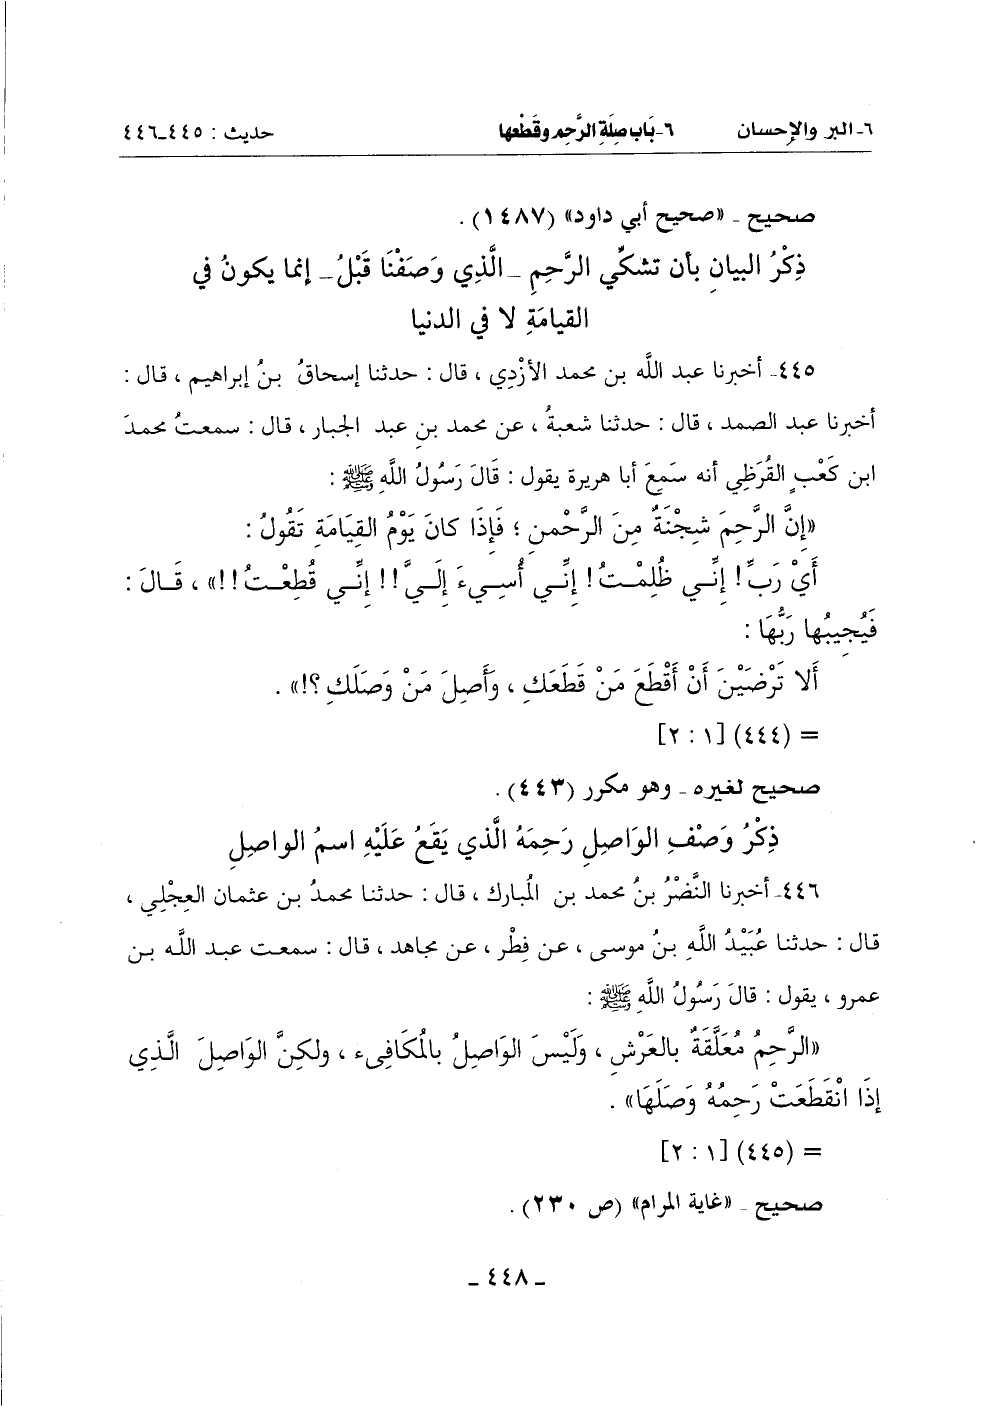 ٦- البر والإحسان ٦- بَاب صِلَةِ الرَّحِمِ وقَطْعِها حديث : ٤٤٥-٤٤٦
صحيح - «صحيح أبي داود» (١٤٨٧) .
ذِكْرُ البيانِ بأن تشكِّي الرَّحِمِ -الَّذِي وَصَفْنَا قَبْلُ- إنما يكونُ في
القيامَةِ لا في الدنيا
٤٤٥- أخبرنا عبد اللَّه بن محمد الأزْدِي ، قال : حدثنا إسحاقُ بنُ إبراهيم ، قال :
أخبرنا عبد الصمد ، قال : حدثنا شعبةُ ، عن محمد بنِ عبد الجبار ، قال : سمعتُ محمدَ
ابن كَعْبٍ القُرَظِي أنه سَمِعَ أبا هريرة يقول : قَالَ رَسُولُ اللَّهِ ﷺ :
«إِنَّ الرَّحِمَ شِجْنَةٌ مِنَ الرَّحْمنِ ؛ فَإِذَا كانَ يَوْمُ القِيَامَةِ تَقُولُ :
أَيْ رَبِّ! إِنِّي ظُلِمْتُ! إِنِّي أُسِيءَ إِلَيَّ!! إِنِّي قُطِعْتُ!!» ، قَالَ :
فَيُجِيبُها رَبُّهَا :
أَلا تَرْضَيْنَ أَنْ أَقْطَعَ مَنْ قَطَعَكِ ، وَأَصِلَ مَنْ وَصَلَكِ ؟!» .
= (٤٤٤) [١ : ٢]
صحيح لغيره - وهو مكرر (٤٤٣) .
ذِكْرُ وَصْفِ الوَاصِلِ رَحِمَهُ الَّذي يَقَعُ عَلَيْهِ اسمُ الواصِلِ
٤٤٦- أخبرنا النَّضْرُ بنُ محمد بن المُبارك ، قال : حدثنا محمدُ بن عثمان العِجْلِي ،
قال : حدثنا عُبَيْدُ اللَّهِ بنُ موسى ، عن فِطْر ، عن مجاهد ، قال : سمعت عبد اللَّه بن
عمرو ، يقول : قالَ رَسُولُ اللَّهِ ﷺ :
«الرَّحِمُ مُعَلَّقَةٌ بالعَرْشِ ، وَلَيْسَ الوَاصِلُ بالْمُكَافِىء ، ولكنَّ الوَاصِلَ الَّذِي
إِذَا انْقَطَعَتْ رَحِمُهُ وَصَلَهَا» .
= (٤٤٥) [١ : ٢]
صحيح - «غاية المرام» (ص ٢٣٠) .
- ٤٤٨ -